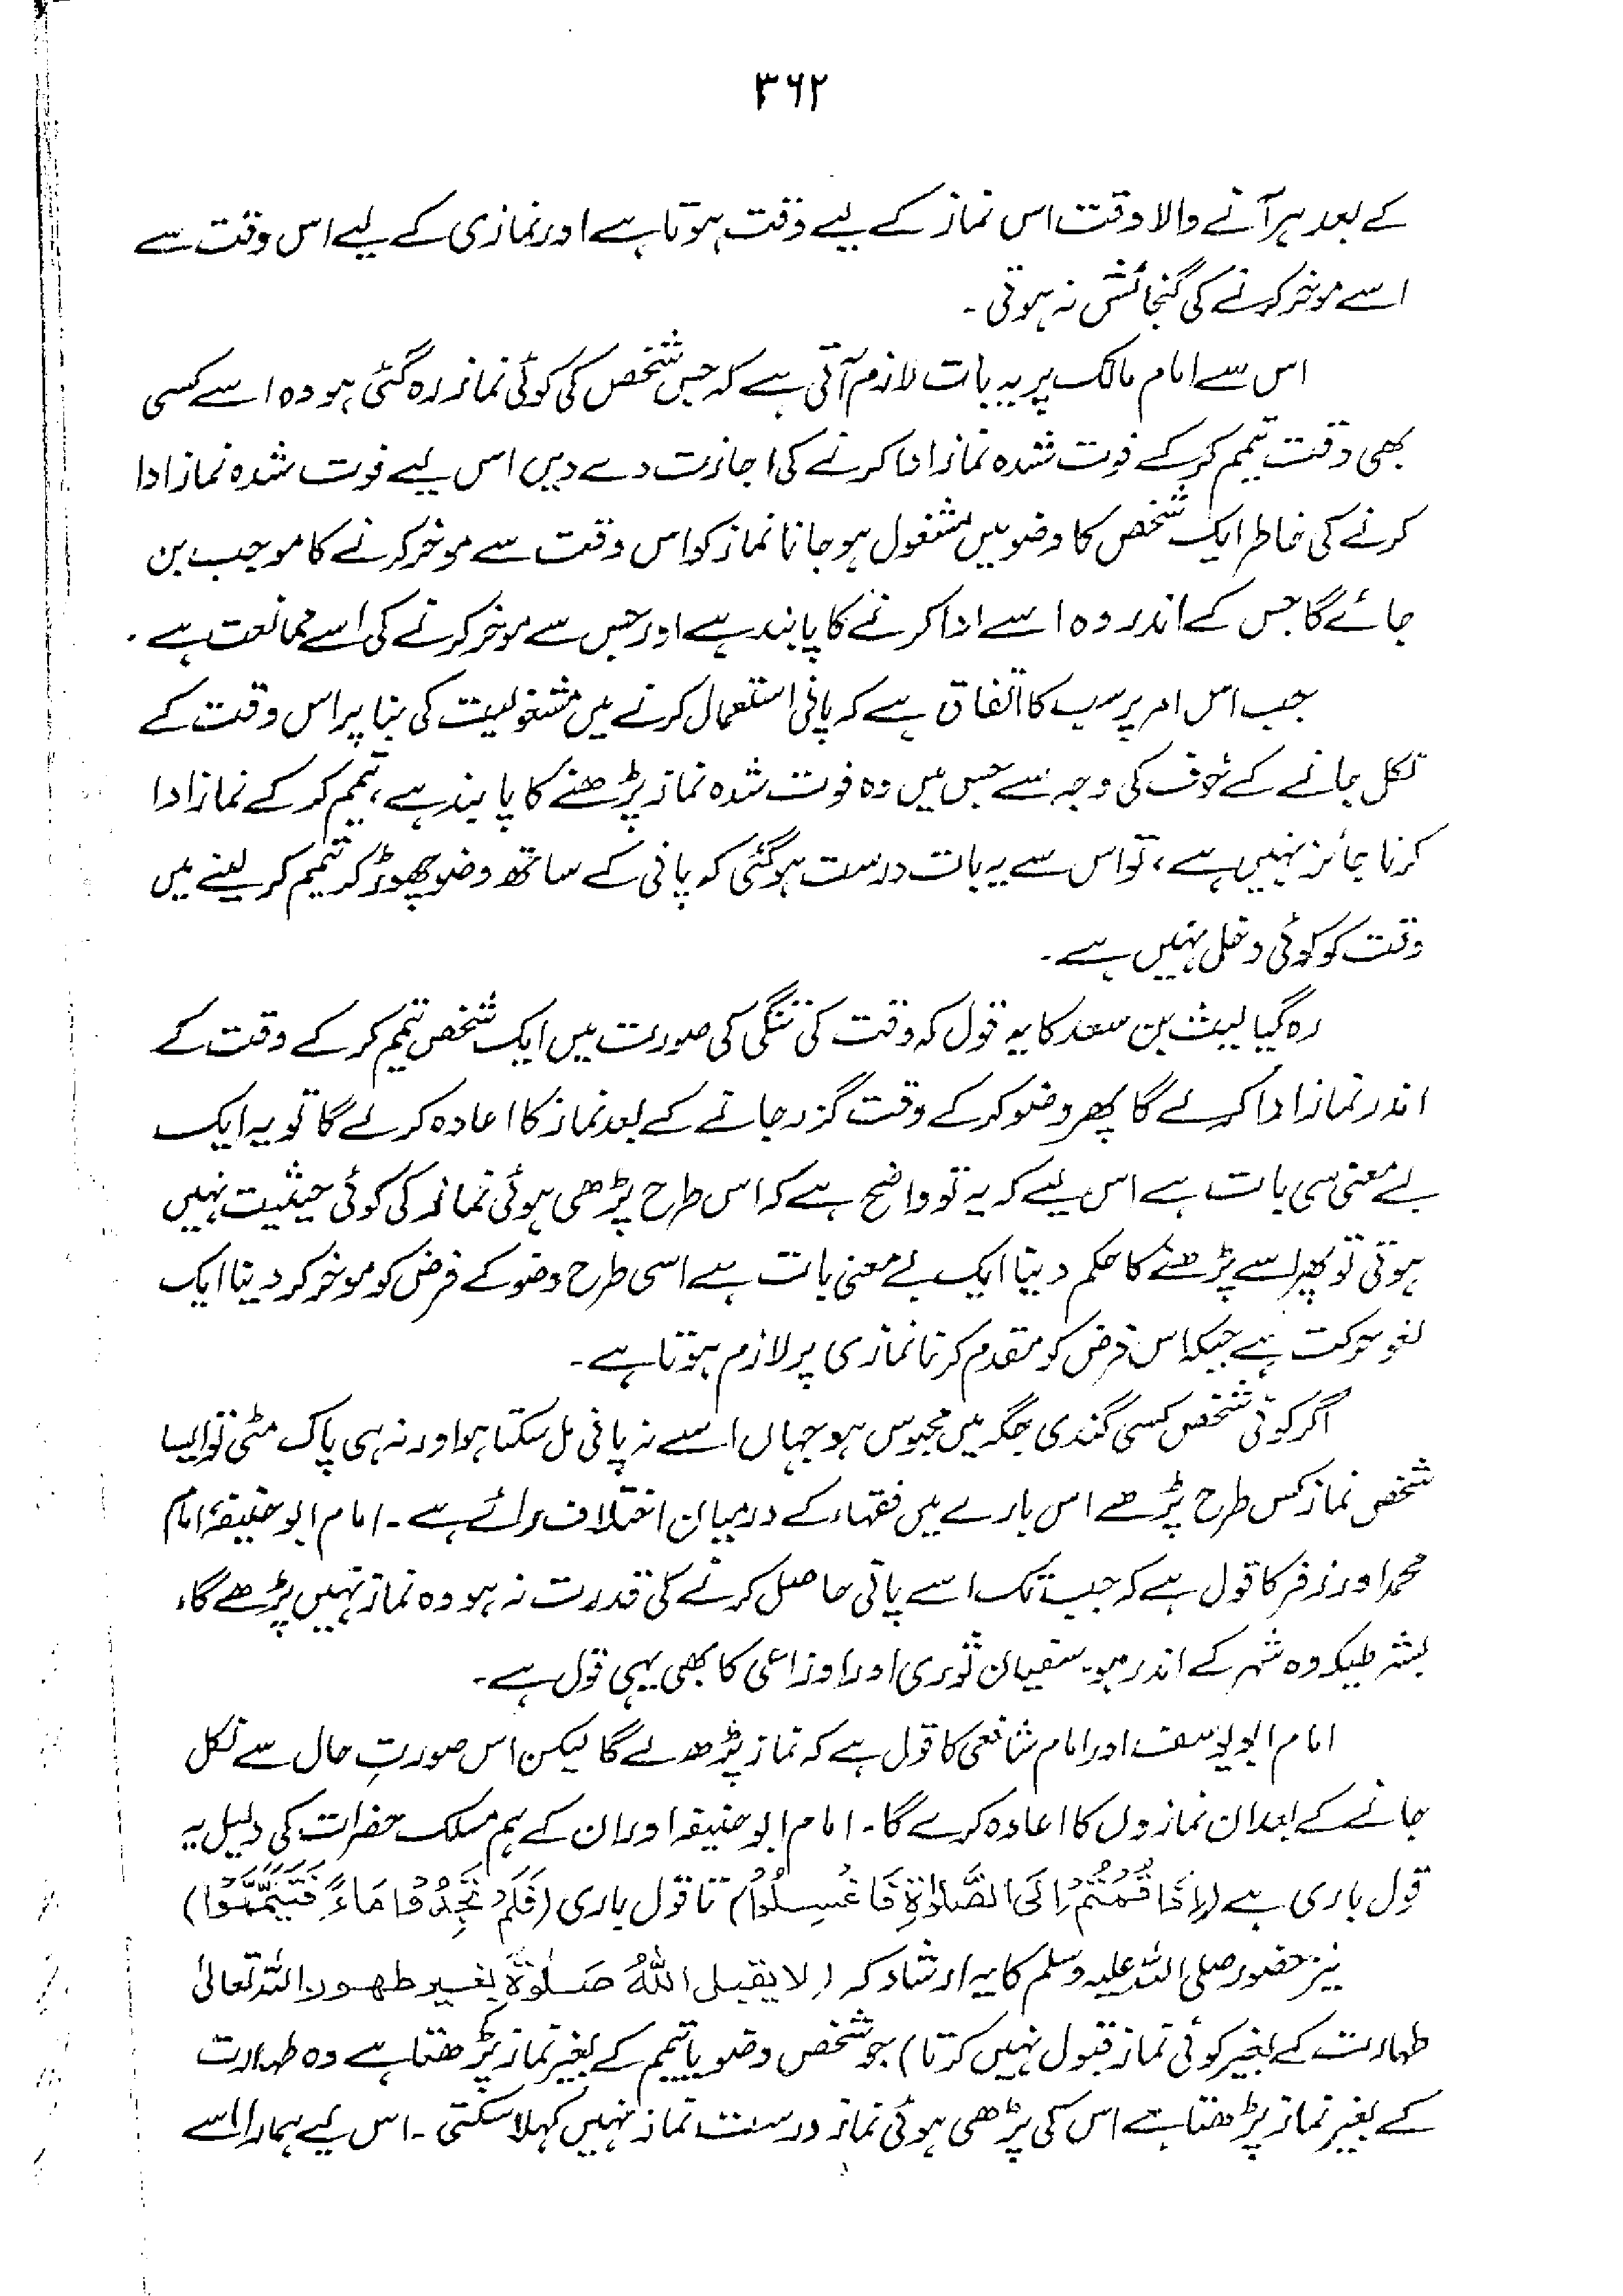 ۳۶۲
کے بعد ہر آنے والا وقت اس نماز کے لیے وقت ہوتا ہے اور نمازی کے لیے اس وقت سے
اسے موخر کرنے کی گنجائش نہ ہوتی۔
اس سے امام مالک پر یہ بات لازم آتی ہے کہ جس شخص کی کوئی نماز رہ گئی ہو وہ اسے کسی
بھی وقت تیمم کر کے فوت شدہ نماز ادا کرنے کی اجازت دے دیں اس لیے فوت شدہ نماز ادا
کرنے کی خاطر ایک شخص کا وضو میں مشغول ہو جانا نماز کو اس وقت سے موخر کرنے کا موجب بن
جائے گا جس کے اندر وہ اسے ادا کرنے کا پابند ہے اور جس سے موخر کرنے کی اسے ممانعت ہے۔
جب اس امر پر سب کا اتفاق ہے کہ پانی استعمال کرنے میں مشغولیت کی بنا پر اس وقت کے
نکل جانے کے خوف کی وجہ سے جس میں وہ فوت شدہ نماز پڑھنے کا پابند ہے، تیمم کر کے نماز ادا
کرنا جائز نہیں ہے، تو اس سے یہ بات درست ہو گئی کہ پانی کے ساتھ وضو چھوڑ کر تیمم کر لینے میں
وقت کو کوئی دخل نہیں ہے۔
رہ گیا لیث بن سعد کا یہ قول کہ وقت کی تنگی کی صورت میں ایک شخص تیمم کر کے وقت کے
اندر نماز ادا کرلے گا پھر وضو کر کے وقت گزر جانے کے بعد نماز کا اعادہ کرلے گا تو یہ ایک
بے معنی سی بات ہے اس لیے کہ یہ تو واضح ہے کہ اس طرح پڑھی ہوئی نماز کی کوئی حیثیت نہیں
ہوتی تو پھر اسے پڑھنے کا حکم دینا ایک بے معنی بات ہے اسی طرح وضو کے فرض کو موخر کر دینا ایک
لغو حرکت ہے جبکہ اس فرض کو مقدم کرنا نمازی پر لازم ہوتا ہے۔
اگر کوئی شخص کسی گندی جگہ میں محبوس ہو جہاں اسے نہ پانی مل سکتا ہو اور نہ ہی پاک مٹی تو ایسا
شخص نماز کس طرح پڑھے اس بارے میں فقہاء کے درمیان اختلاف رائے ہے۔ امام ابو حنیفہ، امام
محمد اور زفر کا قول ہے کہ جب تک اسے پانی حاصل کرنے کی قدرت نہ ہو وہ نماز نہیں پڑھے گا،
بشرطیکہ وہ شہر کے اندر ہو۔ سفیان ثوری اور اوزاعی کا بھی یہی قول ہے۔
امام ابو یوسف اور امام شافعی کا قول ہے کہ نماز پڑھ لے گا لیکن اس صورتِ حال سے نکل
جانے کے بعد ان نمازوں کا اعادہ کرے گا۔ امام ابو حنیفہ اور ان کے ہم مسلک حضرات کی دلیل یہ
قول باری ہے (اِذَا قُمْتُمْ اِلَی الصَّلٰوۃِ فَاغْسِلُوْا) تا قول باری (فَلَمْ تَجِدُوْا مَاءً فَتَیَمَّمُوْا)
نیز حضور صلی اللہ علیہ وسلم کا یہ ارشاد کہ (لا یقبل اللہُ صَلٰوۃً بغیر طھور اللہ تعالیٰ
طہارت کے بغیر کوئی نماز قبول نہیں کرتا) جو شخص وضو یا تیمم کے بغیر نماز پڑھتا ہے وہ طہارت
کے بغیر نماز پڑھتا ہے اس کی پڑھی ہوئی نماز درست نماز نہیں کہلا سکتی۔ اس لیے ہمارا اسے